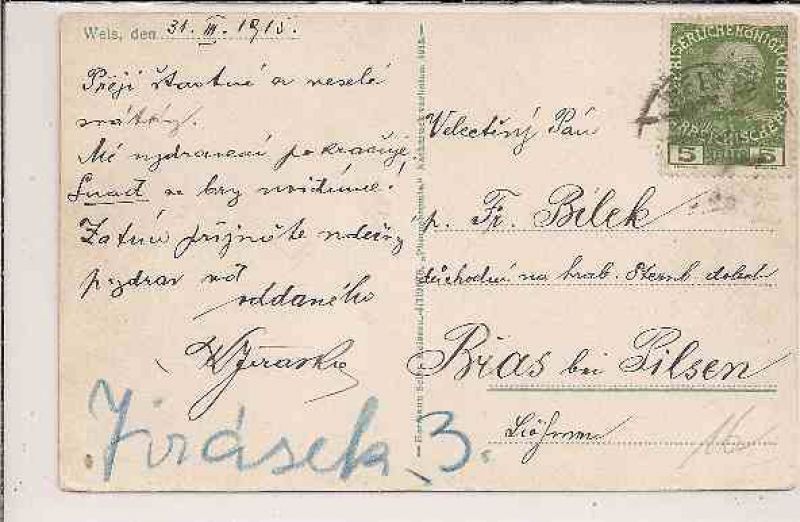 Wels, den 31. III. 1915.
Přeji šťastné a veselé
svátky.
Mé uzdravení pokračuje.
Snad se brzy uvidíme.
Zatím přijměte srdečný
pozdrav od
oddaného
Jiráska
Jirásek 3.
Velectěný Pán
p. Fr. Bílek
důchodní na hrab. Sternb.
Břas bei Pilsen
Böhmen
16
5 5